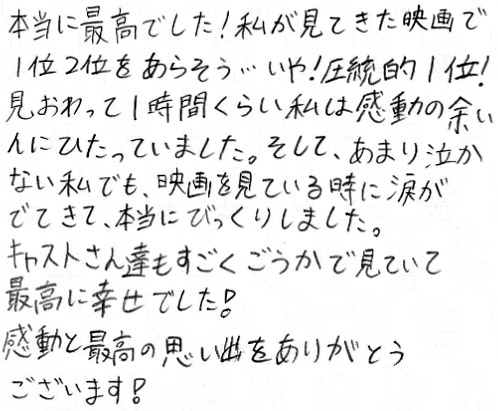 本当に最高でした!私が見てきた映画で
1位2位をあらそう…いや!圧統的1位!
見おわって1時間くらい私は感動の余い
んにひたっていました。そして、あまり泣か
ない私でも、映画を見ている時に涙が
でてきて、本当にびっくりしました。
キャストさん達もすごくごうかで見ていて
最高に幸せでした!
感動と最高の思い出をありがとう
ございます!